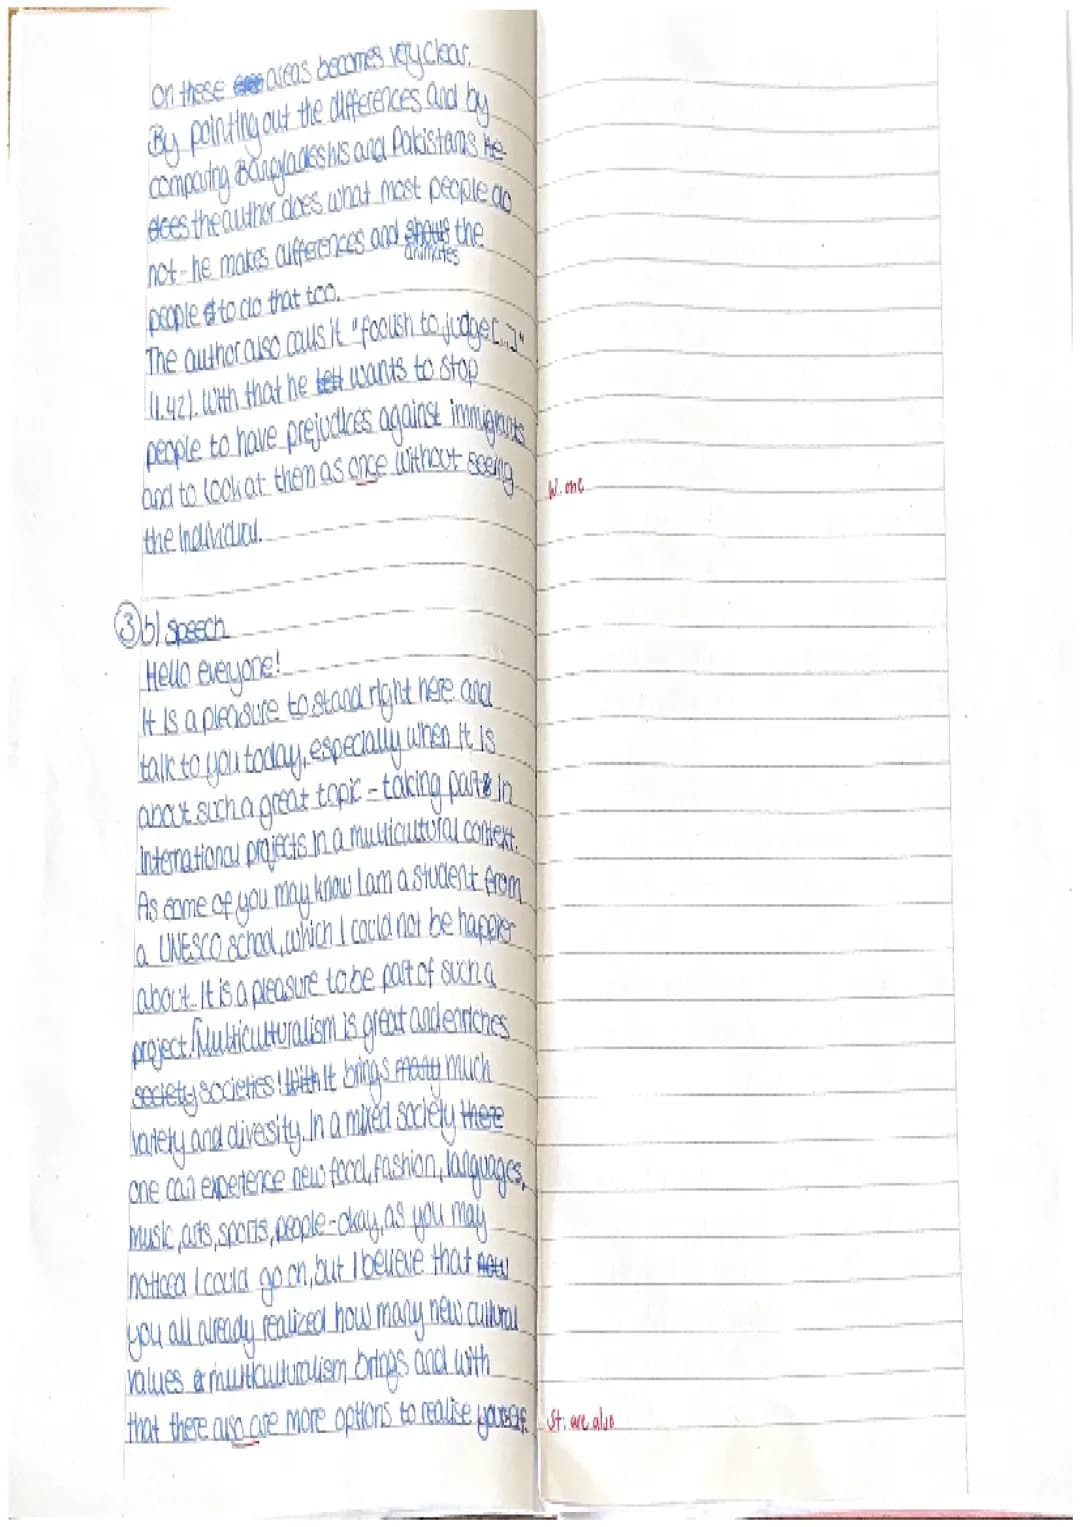 on these areas becomes very clear.
By pointing out the differences and by
comparing Bangladeshis and Pakistanis he
does the author does what most people do
not - he makes differences and shows the
animates
people to do that too.
The author also calls it "foolish to judge [...]"
(l.42). With that he wants to stop
people to have prejudices against immigrants
and to look at them as once without seeing
W. one
the individual.
③ b) speech
Hello everyone!
It is a pleasure to stand right here and
talk to you today, especially when it is
about such a great topic - taking part in
international projects in a multicultural context.
As some of you may know I am a student from
a UNESCO school, which I could not be happier
about. It is a pleasure to be part of such a
project. Multiculturalism is great and enriches
society societies! With It brings many much
variety and divesity. In a mixed society there
one can experience new food, fashion, languages,
music, arts, sports, people - okay, as you may
noticed I could go on, but I believe that now
you all already realized how many new cultural
values multiculturalism brings and with
that there also are more options to realise yourself.
St: are also